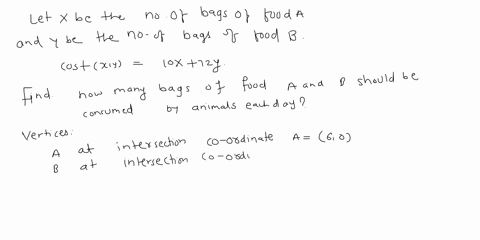 Let X be the no. of bags of food A
and y be the no. of bags of food B.
cost (x,y) = 10X + 12y.
Find how many bags of food A and B should be
consumed by animals each day?
Vertices:
A at intersection co-ordinate A = (6,0)
B at intersection co-ordi